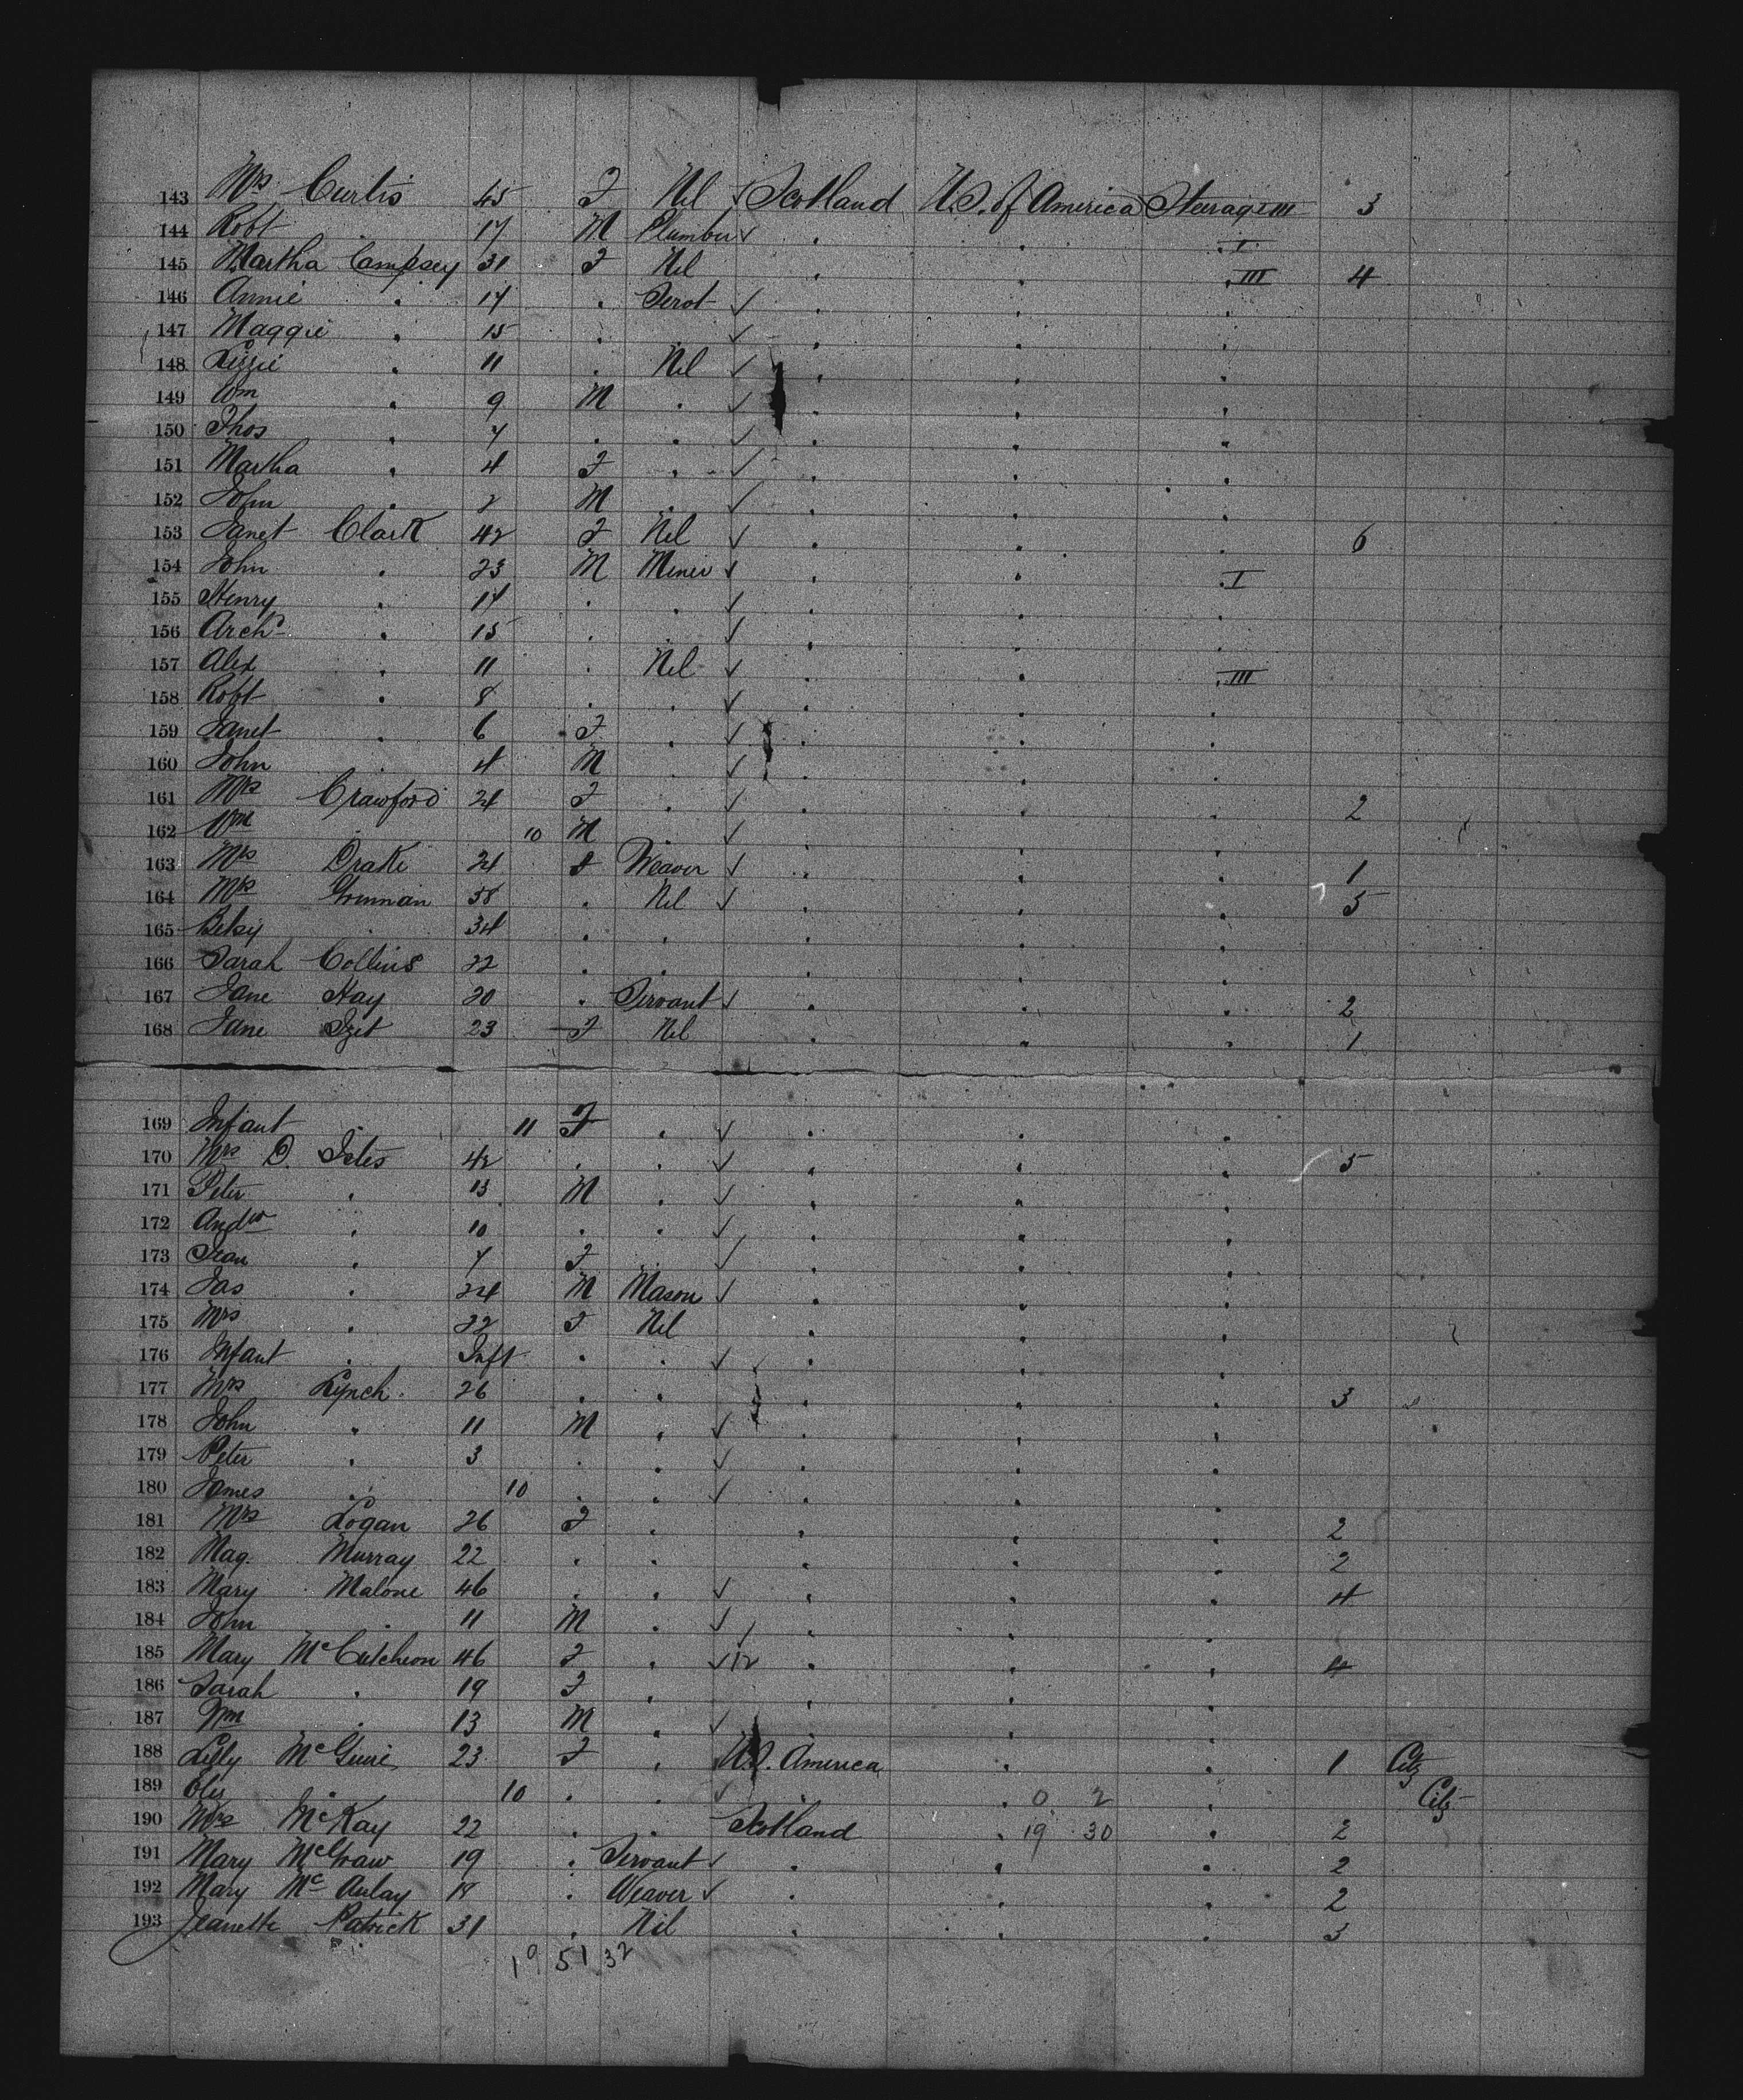 143 Mrs Curtis 45 F Nil √ Scotland U.S. of America Steerage III 3
144 Robt 17 M Plumber √ . . . I
145 Martha Campsey 31 F Nil . . . III 4
146 Annie . 17 . Servt √ . . .
147 Maggie . 15 . √ . . .
148 Lizzie . 11 . Nil √ . . .
149 Wm . 9 M . √ . . .
150 Thos . 7 . . √ . . .
151 Martha . 4 F . √ . . .
152 John . 2 M . √ . . .
153 Janet Clark 42 F Nil √ . . . 6
154 John . 23 M Miner √ . . . I
155 Henry . 17 . . √ . . .
156 Archd . 15 . √ . . .
157 Alex . 11 . Nil √ . . . III
158 Robt . 8 . . √ . . .
159 Janet . 6 F . √ . . .
160 John . 4 M . √ . . .
161 Mrs Crawford 24 F . √ . . . 2
162 Wm 10 M √ . . .
163 Mrs Drake 24 F Weaver √ . . . 1
164 Mrs Grennan 58 . Nil √ . . . 5
165 Betsy . 34 . . . . .
166 Sarah Collins 22 . . . . .
167 Jane Hay 20 . Servant √ . . . 2
168 Jane Izet 23 F Nil . . . 1
169 Infant . 11 F . √ . . .
170 Mrs D. Isles 42 . . √ . . . 5
171 Peter . 13 M . √ . . .
172 Andw . 10 . . √ . . .
173 Jean . 7 F √ . . .
174 Jas . 24 M Mason √ . . .
175 Mrs . 22 F Nil . . .
176 Infant . Inft . . √ . . .
177 Mrs Lynch 26 . . . . . 3
178 John . 11 M . √ . . .
179 Peter . 3 . . √ . . .
180 James . 10 . . √ . . .
181 Mrs Logan 26 F . . . . 2
182 Mag. Murray 22 . . . . . 2
183 Mary Malone 46 . . √ . . . 4
184 John . 11 M . √ . . .
185 Mary McCutcheon 46 F . √ 12 . . . 4
186 Sarah . 19 F . . . .
187 Wm . 13 M . √ . . .
188 Lizly McGuire 23 F . U.S. America . . 1 Citz
189 . 10 . . √ . 0 2 . Citz
190 Mrs McKay 22 . . Scotland . 19 30 . 2
191 Mary McGraw 19 . Servant √ . . . 2
192 Mary McAulay 18 . Weaver √ . . . 2
193 Jeanette Patrick 31 . Nil . . . 3
19 51 32